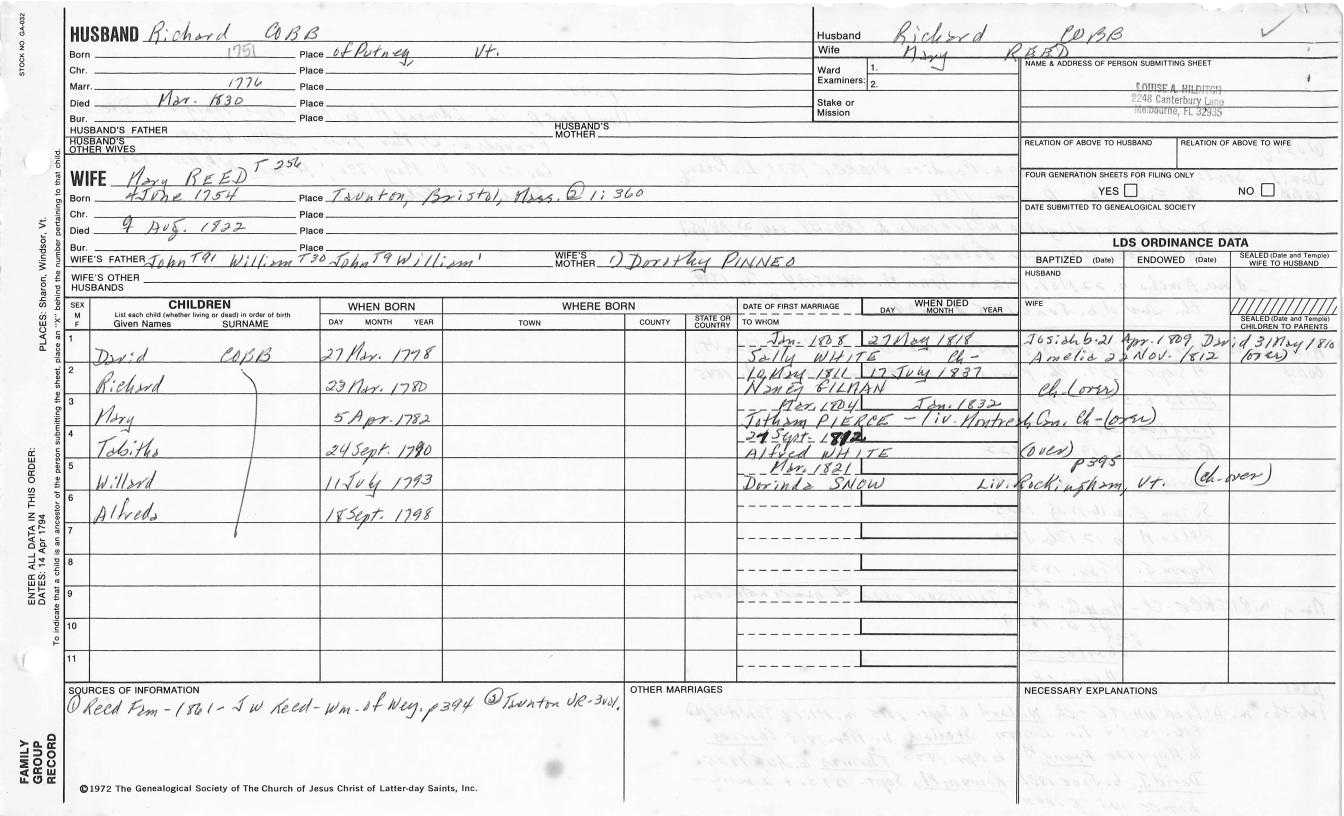 STOCK NO. GA-032
HUSBAND Richard COBB
Born 1751 Place of Putney, Vt.
Chr. Place
Marr. 1776 Place
Died Mar. 1830 Place
Bur. Place
HUSBAND'S FATHER HUSBAND'S MOTHER
HUSBAND'S OTHER WIVES
Husband Richard COBB
Wife Mary REED
Ward Examiners: 1.
2.
Stake or Mission
NAME & ADDRESS OF PERSON SUBMITTING SHEET
LOUISE A. HILDITCH
2248 Canterbury Lane
Melbourne, FL 32935
RELATION OF ABOVE TO HUSBAND RELATION OF ABOVE TO WIFE
FOUR GENERATION SHEETS FOR FILING ONLY
YES NO
DATE SUBMITTED TO GENEALOGICAL SOCIETY
WIFE Mary REED T 256
Born 4 June 1754 Place Taunton, Bristol, Mass. ② 1: 360
Chr. Place
Died 9 Aug. 1822 Place
Bur. Place
WIFE'S FATHER John T91 William T30 John T9 William' WIFE'S MOTHER 1) Dorothy PINNEO
WIFE'S OTHER HUSBANDS
LDS ORDINANCE DATA
BAPTIZED (Date) ENDOWED (Date) SEALED (Date and Temple) WIFE TO HUSBAND
HUSBAND
WIFE
SEALED (Date and Temple) CHILDREN TO PARENTS
SEX M F
CHILDREN
List each child (whether living or dead) in order of birth
Given Names SURNAME
WHEN BORN
DAY MONTH YEAR
WHERE BORN
TOWN COUNTY STATE OR COUNTRY
DATE OF FIRST MARRIAGE
TO WHOM
WHEN DIED
DAY MONTH YEAR
1 Jan. 1808 27 May 1818 Josiah b. 21 Apr. 1809, David 31 May 1810
David COBB 27 Mar. 1778 Sally WHITE Ch- Amelia 22 Nov. 1812 (over)
2 10 May 1811 17 July 1837
Richard 23 Mar. 1780 Nancy GILMAN Ch-(over)
3 Mar. 1804 Jan. 1832
Mary 5 Apr. 1782 Jotham PIERCE - liv. Montreal, Can. Ch-(over)
4 27 Sept. 1812
Tabitha 24 Sept. 1790 Alfred WHITE (over)
5 Mar. 1821 p395
Willard 11 July 1793 Dorinda SNOW Liv. Rockingham, Vt. (ch-over)
6
Alfreda 18 Sept. 1798
7
8
9
10
11
SOURCES OF INFORMATION
① Reed Fam - 1861 - J W Reed - Wm. of Wey. p394 ② Taunton VR - 3vol.
OTHER MARRIAGES
NECESSARY EXPLANATIONS
©1972 The Genealogical Society of The Church of Jesus Christ of Latter-day Saints, Inc.
FAMILY GROUP RECORD
ENTER ALL DATA IN THIS ORDER:
DATES: 14 Apr 1794 PLACES: Sharon, Windsor, Vt.
To indicate that a child is an ancestor of the person submitting the sheet, place an "X" behind the number pertaining to that child.